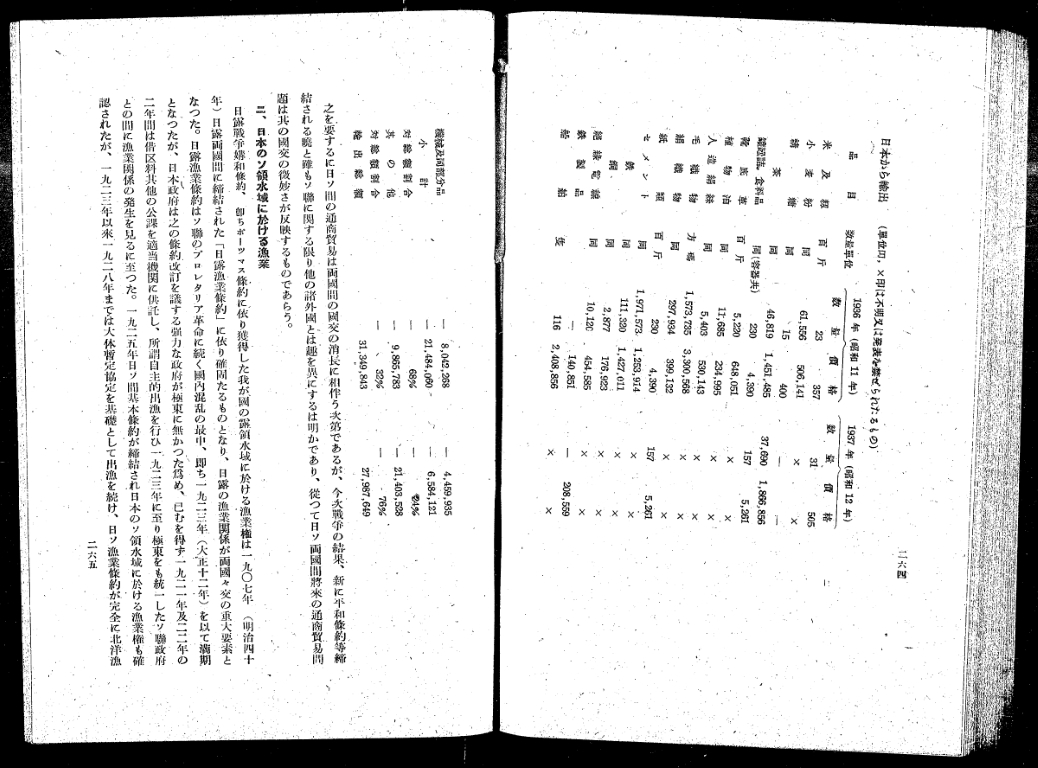 二六四
日本から輸出 (単位円、×印は不明又は発表を禁ぜられたるもの)
品目 数量単位 1936年(昭和11年) 1937年(昭和12年)
数量 價格 数量 價格
米及籾 百斤 23 357 31 505
小麥粉 同 61,556 506,141 × ×
精糖 同 15 400 — —
茶 同 46,819 1,451,485 37,690 1,866,856
罐壜詰食料品 同(容器共) 230 4,390 157 5,261
底革 百斤 5,220 648,051 × ×
植物油 同 11,685 234,995 × ×
人造絹絲 同 5,403 530,143 × ×
毛織物 方碼 1,573,735 3,300,568 × ×
絹織物 同 297,934 399,132 × ×
紙類 百斤 230 4,390 157 5,261
セメント 同 1,971,573 1,253,914 × ×
鐵 同 111,320 1,427,011 × ×
銅 同 2,877 176,923 × ×
絶縁電線 同 10,120 454,585 × ×
鐵製品 — 140,851 — 208,559
船舶 隻 116 2,408,856 × ×
機械及同部分品 — 8,042,268 — 4,459,935
小計 — 21,484,060 — 6,584,121
対總額割合 68% 24%
其の他 — 9,865,783 — 21,403,528
対總額割合 32% 76%
輸出總額 — 31,349,843 27,987,649
之を要するに日ソ間の通商貿易は両國間の國交の消長に相伴う次第であるが、今次戦爭の結果、新に平和條約等締
結される曉と雖もソ聯に関する限り他の諸外國とは趣を異にするは明かであり、從つて日ソ両國間將來の通商貿易問
題は其の國交の微妙さが反映するものであらう。
三、日本のソ領水域に於ける漁業
日露戰爭媾和條約、卽ちポーツマス條約に依り獲得した我が國の露領水域に於ける漁業權は一九〇七年（明治四十
年）日露両國間に締結された「日露漁業條約」に依り確固たるものとなり、日露の漁業関係が両國々交の重大要素と
なつた。日露漁業條約はソ聯のプロレタリア革命に続く國內混乱の最中、即ち一九二三年（大正十二年）を以て満期
となつたが、日本政府は之の條約改訂を議する強力な政府が極東に無かつた爲め、已むを得ず一九二一年及二二年の
二年間は借区料其他の公課を適当機関に供託し、所謂自主的出漁を行ひ一九二三年に至り極東をも統一したソ聯政府
との間に漁業関係の発生を見るに至つた。一九二五年日ソ間基本條約が締結され日本のソ領水域に於ける漁業權も確
認されたが、一九二三年以來一九二八年までは大体暫定協定を基礎として出漁を続け、日ソ漁業條約が完全に北洋漁
二六五